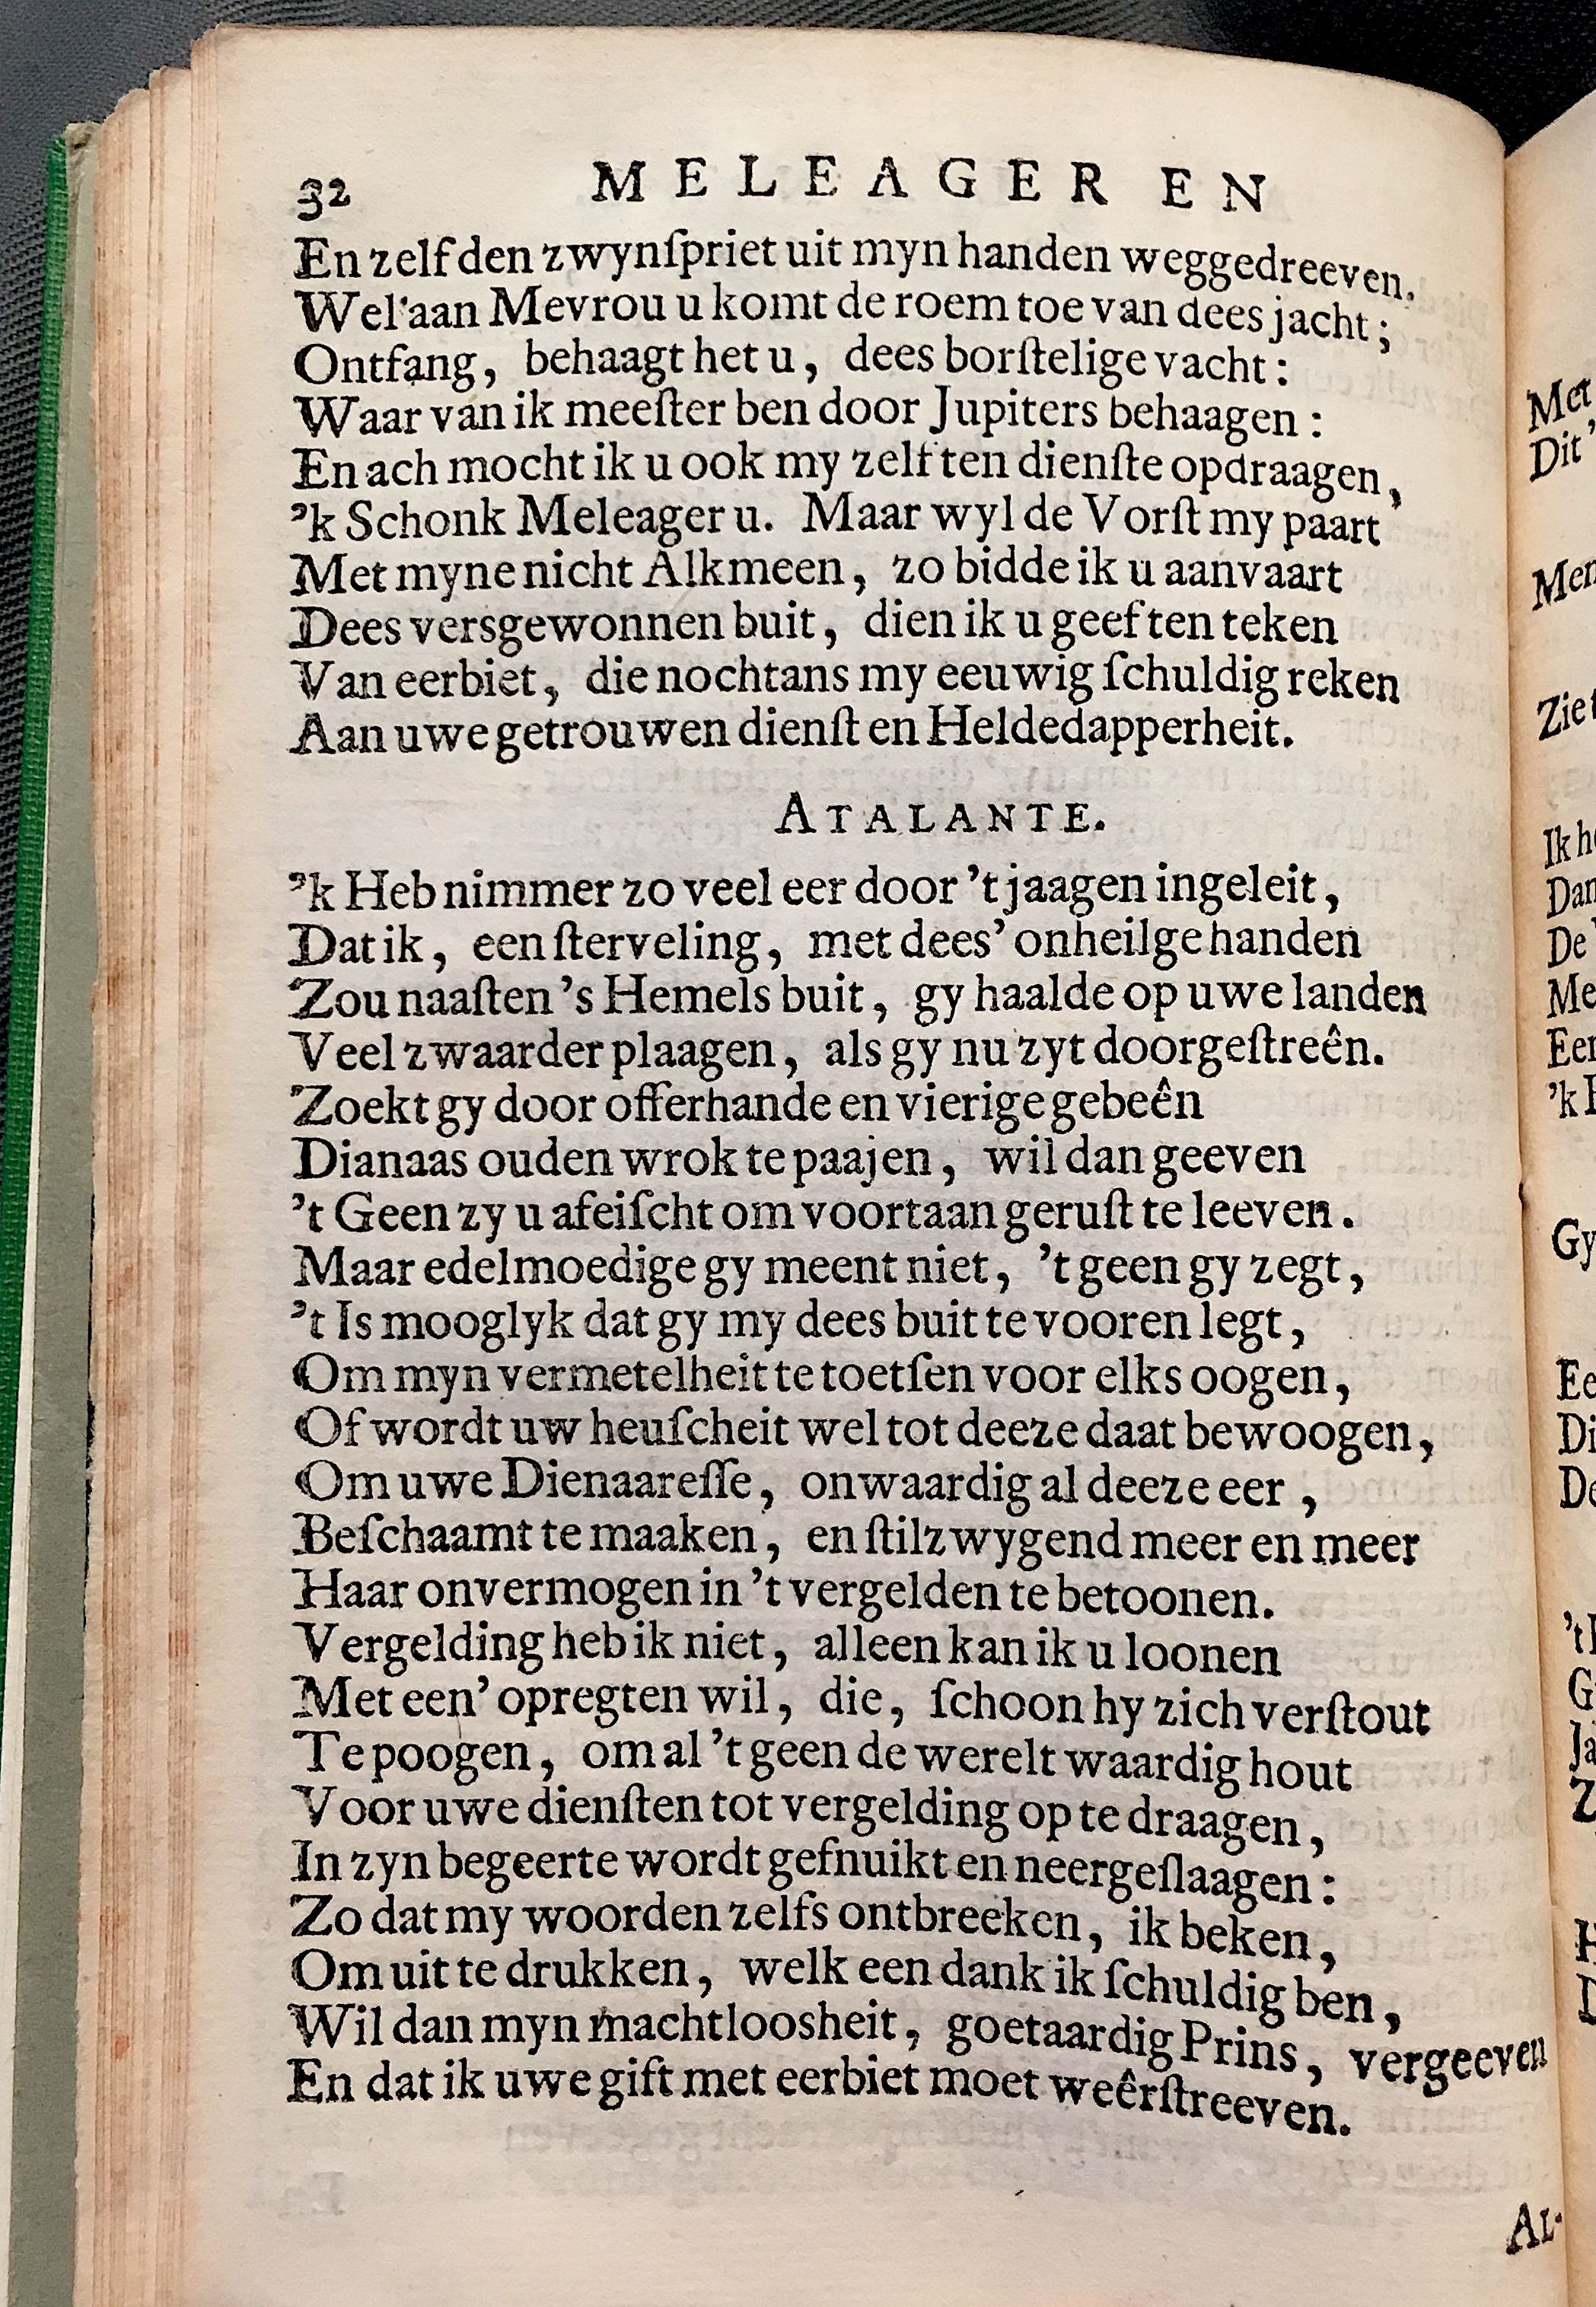 32 MELEAGER EN
En zelf den zwynſpriet uit myn handen weggedreeven.
Wel aan Mevrou u komt de roem toe van dees jacht;
Ontfang, behaagt het u, dees borſtelige vacht:
Waar van ik meeſter ben door Jupiters behaagen:
En ach mocht ik u ook my zelf ten dienſte opdraagen,
'k Schonk Meleager u. Maar wyl de Vorſt my paart
Met myne nicht Alkmeen, zo bidde ik u aanvaart
Dees versgewonnen buit, dien ik u geef ten teken
Van eerbiet, die nochtans my eeuwig ſchuldig reken
Aan uwe getrouwen dienſt en Heldedapperheit.
ATALANTE.
'k Heb nimmer zo veel eer door 't jaagen ingeleit,
Dat ik, een ſterveling, met dees' onheilge handen
Zou naaſten 's Hemels buit, gy haalde op uwe landen
Veel zwaarder plaagen, als gy nu zyt doorgeſtreên.
Zoekt gy door offerhande en vierige gebeên
Dianaas ouden wrok te paajen, wil dan geeven
't Geen zy u afeiſcht om voortaan geruſt te leeven.
Maar edelmoedige gy meent niet, 't geen gy zegt,
't Is mooglyk dat gy my dees buit te vooren legt,
Om myn vermetelheit te toetſen voor elks oogen,
Of wordt uw heuſcheit wel tot deeze daat bewoogen,
Om uwe Dienaareſſe, onwaardig al deeze eer,
Beſchaamt te maaken, en ſtilzwygend meer en meer
Haar onvermogen in 't vergelden te betoonen.
Vergelding heb ik niet, alleen kan ik u loonen
Met een' opregten wil, die, ſchoon hy zich verſtout
Te poogen, om al 't geen de werelt waardig hout
Voor uwe dienſten tot vergelding op te draagen,
In zyn begeerte wordt gefnuikt en neergeſlaagen:
Zo dat my woorden zelfs ontbreeken, ik beken,
Om uit te drukken, welk een dank ik ſchuldig ben,
Wil dan myn machtloosheit, goetaardig Prins, vergeeven
En dat ik uwe gift met eerbiet moet weêrſtreeven.
AL-
Met
Dit
Men
Ziet
Ik
De
Me
Gy